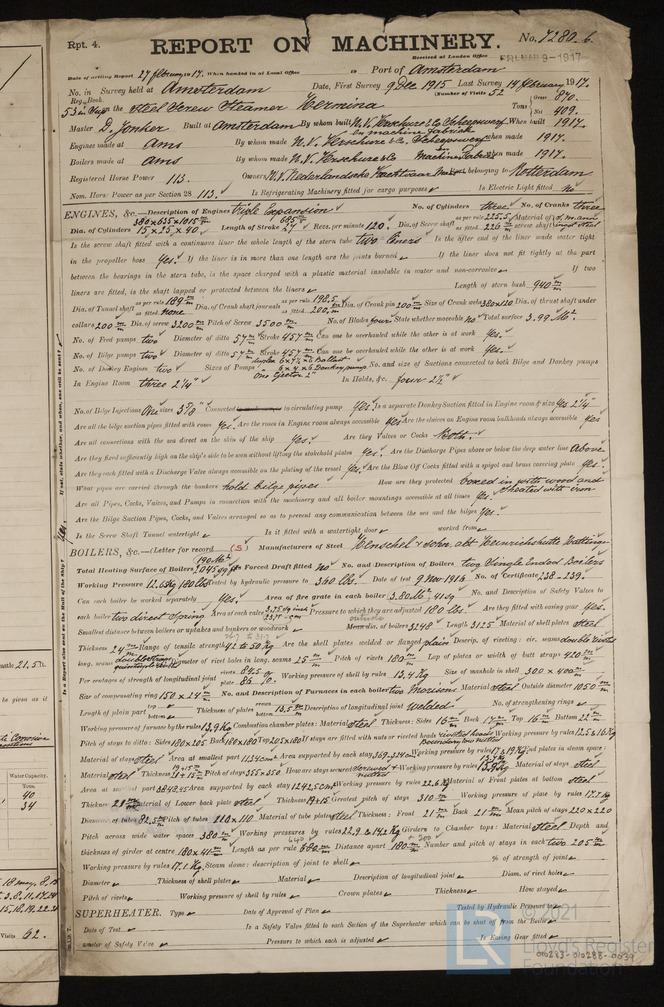 Rpt. 4.
REPORT ON MACHINERY.
No. 7280.6.
Received at London Office FRI. MAR 9-1917
Date of writing Report 27 february 17. When handed in at Local Office 19 Port of Amsterdam
No. in Survey held at Amsterdam Date, First Survey 9 Dec 1915 Last Survey 14 february 1917.
Reg. Book. (Number of Visits 52
on the Steel Screw Steamer Hermina Tons Gross 870. Net 409.
Master D. Jonker Built at Amsterdam By whom built N.V. Verschure & Co Scheepswerf en machine fabriek When built 1917.
Engines made at Ams By whom made N.V. Verschure & Co Scheepswerf when made 1917.
Boilers made at Ams By whom made N.V. Verschure & Co Machine fabriek when made 1917.
Registered Horse Power 113. Owners N.V. Nederlandsche Vrachtvaart Port belonging to Rotterdam
Nom. Horse Power as per Section 28 113. Is Refrigerating Machinery fitted for cargo purposes Is Electric Light fitted no
ENGINES, &c.—Description of Engines Triple Expansion No. of Cylinders three No. of Cranks three
Dia. of Cylinders 15 x 25 x 40 Length of Stroke 27 Revs. per minute 120. Dia. of Screw shaft as per rule 225.5 as fitted 226 Material of screw shaft
Is the screw shaft fitted with a continuous liner the whole length of the stern tube two liners Is the after end of the liner made water tight
in the propeller boss Yes. If the liner is in more than one length are the joints burned If the liner does not fit tightly at the part
between the bearings in the stern tube, is the space charged with a plastic material insoluble in water and non-corrosive If two
liners are fitted, is the shaft lapped or protected between the liners Length of stern bush 940 m/m
Dia. of Tunnel shaft as per rule 189 m/m as fitted none Dia. of Crank shaft journals as per rule 198.5 as fitted 200 m/m Dia. of Crank pin 200 m/m Size of Crank webs 380x120 Dia. of thrust shaft under
collars 200 m/m Dia. of screw 3200 m/m Pitch of Screw 3500 m/m No. of Blades four State whether moveable no Total surface 3.99 M²
No. of Feed pumps two Diameter of ditto 57 m/m Stroke 457 m/m Can one be overhauled while the other is at work Yes.
No. of Bilge pumps two Diameter of ditto 57 m/m Stroke 457 m/m Can one be overhauled while the other is at work Yes.
No. of Donkey Engines two Sizes of Pumps No. and size of Suctions connected to both Bilge and Donkey pumps
In Engine Room three 2¼" one Ejector 2" In Holds, &c. four 2½"
No. of Bilge Injections One sizes 3⅞" Connected to circulating pump Yes. Is a separate Donkey Suction fitted in Engine room & size Yes 2¼"
Are all the bilge suction pipes fitted with roses Yes. Are the roses in Engine room always accessible Yes Are the sluices on Engine room bulkheads always accessible Yes
Are all connections with the sea direct on the skin of the ship Yes. Are they Valves or Cocks Both.
Are they fixed sufficiently high on the ship's side to be seen without lifting the stokehold plates Yes. Are the Discharge Pipes above or below the deep water line Above
Are they each fitted with a Discharge Valve always accessible on the plating of the vessel Yes. Are the Blow Off Cocks fitted with a spigot and brass covering plate Yes.
What pipes are carried through the bunkers hold bilge pipes How are they protected boxed in with wood and sheated with iron
Are all Pipes, Cocks, Valves, and Pumps in connection with the machinery and all boiler mountings accessible at all times Yes
Are the Bilge Suction Pipes, Cocks, and Valves arranged so as to prevent any communication between the sea and the bilges Yes.
Is the Screw Shaft Tunnel watertight Is it fitted with a watertight door worked from
BOILERS, &c.—(Letter for record (S) Manufacturers of Steel Henschel & Sohn abt Heinrichshutte Hattingen
Total Heating Surface of Boilers 190 M² 2045 sq ft Is Forced Draft fitted no No. and Description of Boilers two Single Ended Boilers
Working Pressure 12.65 Kg 180 lbs Tested by hydraulic pressure to 360 lbs. Date of test 9 Nov 1916 No. of Certificate 238-239.
Can each boiler be worked separately Yes. Area of fire grate in each boiler 3.80 M² 41 sq No. and Description of Safety Valves to
each boiler two direct Spring Area of each valve Pressure to which they are adjusted 180 lbs. Are they fitted with easing gear Yes.
Smallest distance between boilers or uptakes and bunkers or woodwork Mean dia. of boilers 3248 Length 3125 Material of shell plates Steel
Thickness 24 m/m Range of tensile strength 42 to 50 Kg Are the shell plates welded or flanged plain Descrip. of riveting: cir. seams double riveted
long. seams Diameter of rivet holes in long. seams 25 m/m Pitch of rivets 180 m/m Lap of plates or width of butt straps 420 m/m
Per centages of strength of longitudinal joint rivets 84.5 plate 86.10. Working pressure of shell by rules 13.4 Kg Size of manhole in shell 300 x 400 m/m
Size of compensating ring 150 x 24 m/m No. and Description of Furnaces in each boiler two Morisons Material Steel Outside diameter 1050 m/m
Length of plain part top bottom Thickness of plates 13.5 m/m Description of longitudinal joint welded No. of strengthening rings
Working pressure of furnace by the rules 13.9 Kg Combustion chamber plates: Material Steel Thickness: Sides 16 m/m Back 17 m/m Top 16 m/m Bottom 22 m/m
Pitch of stays to ditto: Sides 180x205 Back 180x180 Top 205x180 If stays are fitted with nuts or riveted heads Working pressure by rules 12.5 & 16 Kg
Material of stays Steel Area at smallest part Area supported by each stay Working pressure by rules 17 & 19 Kg End plates in steam space:
Material steel Thickness 19+15 Pitch of stays 355x350 How are stays secured Working pressure by rules Material of stays Steel
Area at smallest part Area supported by each stay 1242.50 cm² Working pressure by rules 22.6 Kg Material of Front plates at bottom Steel
Thickness 21 m/m Material of Lower back plate Steel Thickness 19+15 Greatest pitch of stays 310 m/m Working pressure of plate by rules 17.1 Kg
Diameter of tubes 82.5 m/m Pitch of tubes 110x110 Material of tube plates Steel Thickness: Front 21 m/m Back 21 m/m Mean pitch of stays 220 x 220
Pitch across wide water spaces 380 m/m Working pressures by rules Girders to Chamber tops: Material Steel Depth and
thickness of girder at centre 180 x 41 m/m Length as per rule 680 m/m Distance apart 180 m/m Number and pitch of stays in each two 205 m/m
Working pressure by rules 17.1 Kg Steam dome: description of joint to shell % of strength of joint
Diameter Thickness of shell plates Material Description of longitudinal joint Diam. of rivet holes
Pitch of rivets Working pressure of shell by rules Crown plates Thickness How stayed
SUPERHEATER. Type Date of Approval of Plan Tested by Hydraulic Pressure to
Date of Test Is a Safety Valve fitted to each Section of the Superheater which can be shut off from the Boiler
ameter of Safety Valve Pressure to which each is adjusted Is Easing Gear fitted
Lloyd's Register
Foundation
010283-010288-0039
Water Capacity.
Tons.
40
34
Visits 62.